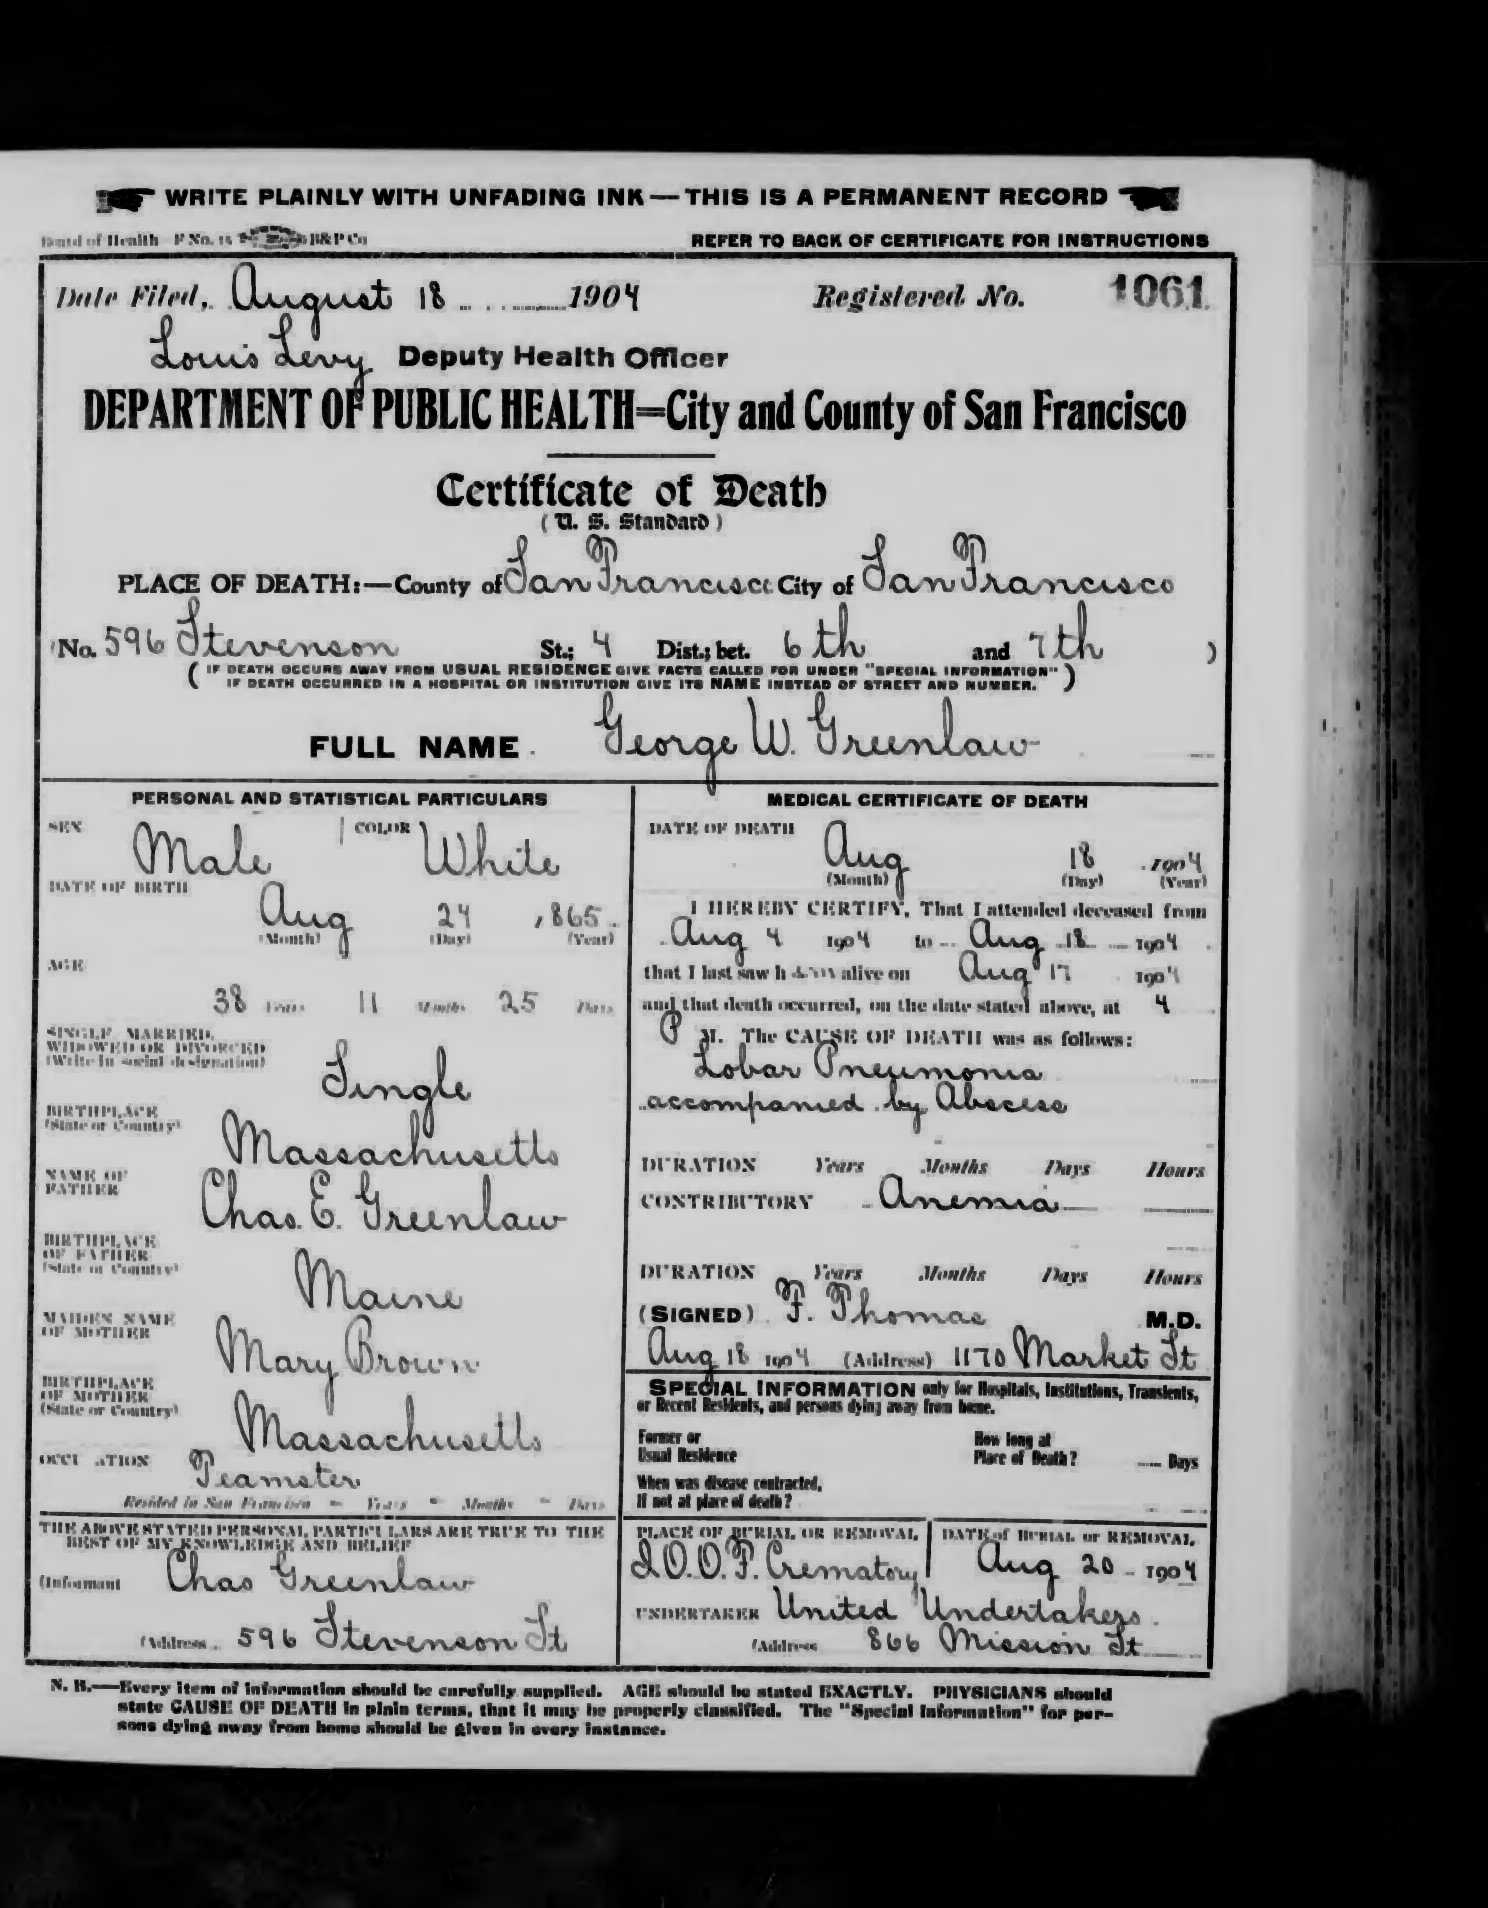 WRITE PLAINLY WITH UNFADING INK — THIS IS A PERMANENT RECORD
Board of Health—F No. 15 B&P Co
REFER TO BACK OF CERTIFICATE FOR INSTRUCTIONS
Date Filed, August 18 1904 Registered No. 1061
Louis Levy Deputy Health Officer
DEPARTMENT OF PUBLIC HEALTH=City and County of San Francisco
Certificate of Death
(U. S. Standard)
PLACE OF DEATH:—County of San Francisco City of San Francisco
(No. 596 Stevenson St.; 4 Dist.; bet. 6th and 7th )
( IF DEATH OCCURS AWAY FROM USUAL RESIDENCE GIVE FACTS CALLED FOR UNDER "SPECIAL INFORMATION"
IF DEATH OCCURRED IN A HOSPITAL OR INSTITUTION GIVE ITS NAME INSTEAD OF STREET AND NUMBER. )
FULL NAME George W. Greenlaw
PERSONAL AND STATISTICAL PARTICULARS
SEX Male COLOR White
DATE OF BIRTH
Aug 24 , 865
(Month) (Day) (Year)
AGE
38 Years 11 Months 25 Days
SINGLE, MARRIED,
WIDOWED OR DIVORCED
(Write in social designation)
Single
BIRTHPLACE
(State or Country)
Massachusetts
NAME OF
FATHER
Chas. E. Greenlaw
BIRTHPLACE
OF FATHER
(State or Country)
Maine
MAIDEN NAME
OF MOTHER
Mary Brown
BIRTHPLACE
OF MOTHER
(State or Country)
Massachusetts
OCCUPATION Teamster
Resided in San Francisco - Years - Months - Days
THE ABOVE STATED PERSONAL PARTICULARS ARE TRUE TO THE
BEST OF MY KNOWLEDGE AND BELIEF
(Informant Chas Greenlaw
(Address 596 Stevenson St
MEDICAL CERTIFICATE OF DEATH
DATE OF DEATH
Aug 18 1904
(Month) (Day) (Year)
I HEREBY CERTIFY, That I attended deceased from
Aug 4 1904 to Aug 18 1904
that I last saw h im alive on Aug 17 1904
and that death occurred, on the date stated above, at 4
P M. The CAUSE OF DEATH was as follows:
Lobar Pneumonia
accompanied by Abscess
DURATION Years Months Days Hours
CONTRIBUTORY Anemia
DURATION Years Months Days Hours
(SIGNED) F. Thomas M.D.
Aug 18 1904 (Address) 1170 Market St
SPECIAL INFORMATION only for Hospitals, Institutions, Transients,
or Recent Residents, and persons dying away from home.
Former or
Usual Residence
How long at
Place of Death? Days
When was disease contracted,
If not at place of death?
PLACE OF BURIAL OR REMOVAL
I.O.O.F. Crematory
DATE of BURIAL or REMOVAL
Aug 20 1904
UNDERTAKER United Undertakers
(Address 866 Mission St
N. B.—Every item of information should be carefully supplied. AGE should be stated EXACTLY. PHYSICIANS should
state CAUSE OF DEATH in plain terms, that it may be properly classified. The "Special Information" for per-
sons dying away from home should be given in every instance.